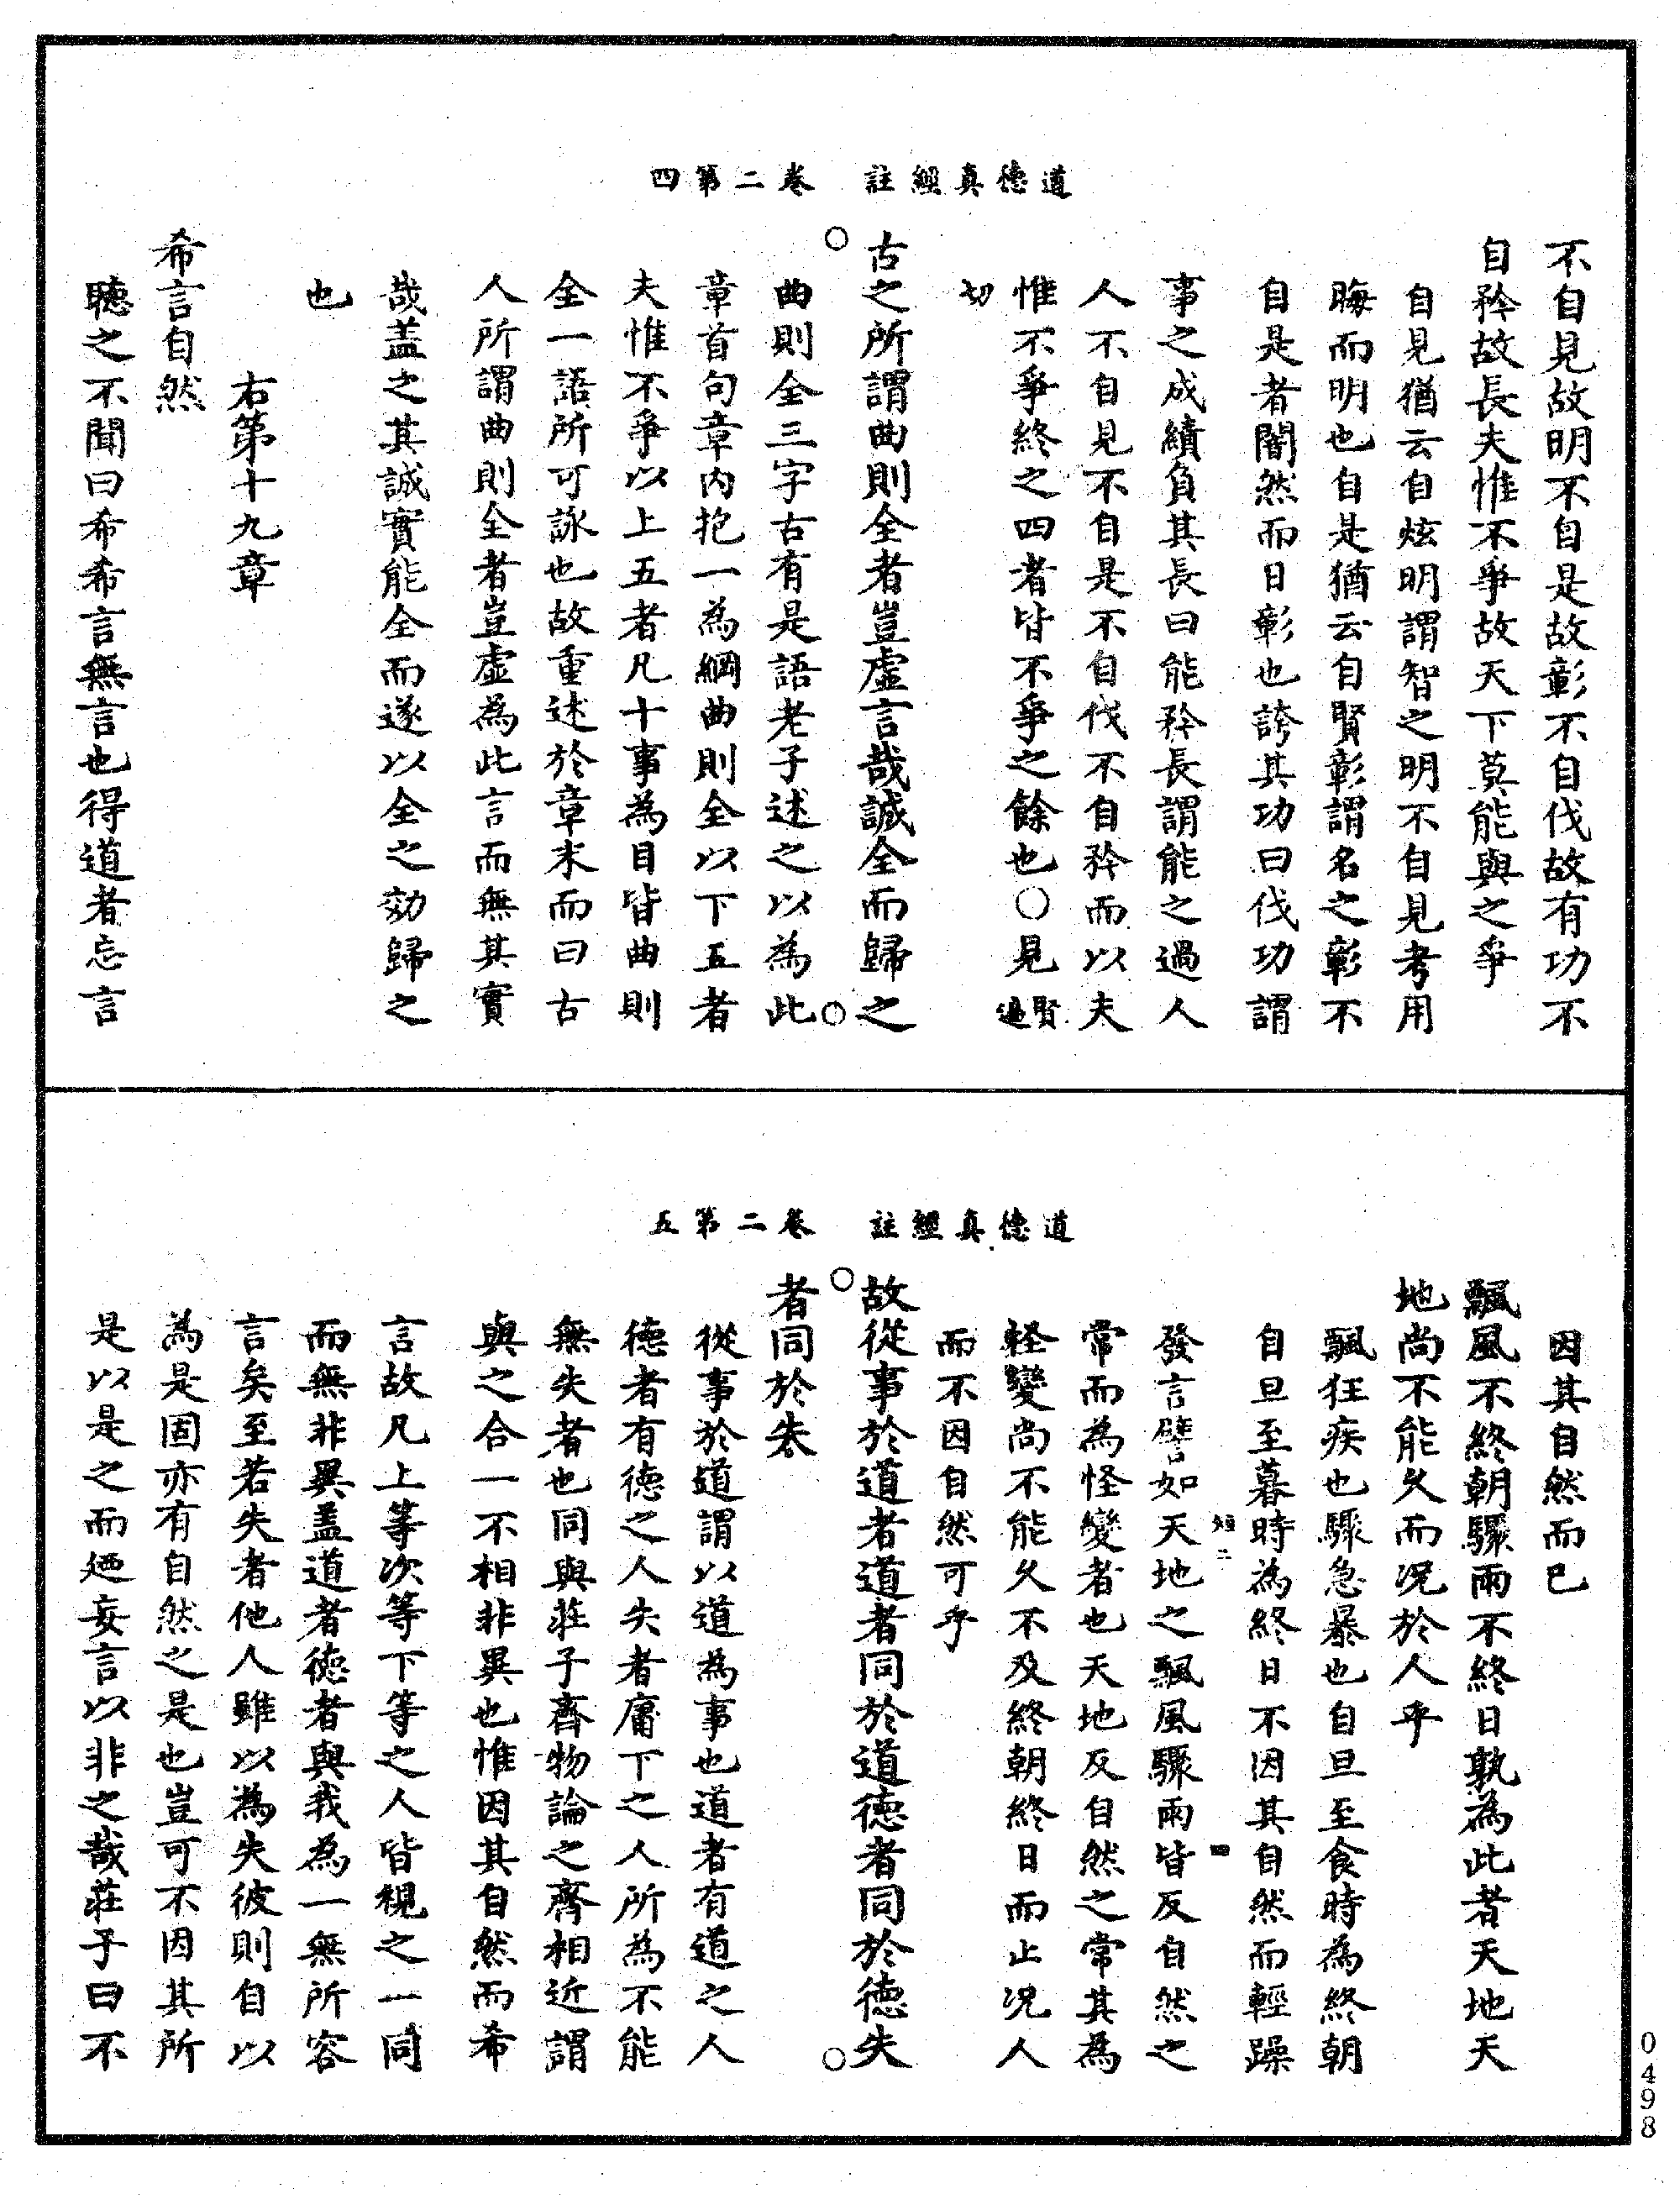 道德真經註　卷二第四
不自見故明不自是故彰不自伐故有功不
自矜故長夫惟不爭故天下莫能與之爭
自見猶云自炫明謂智之明不自見者用
晦而明也自是猶云自賢彰謂名之彰不
自是者闇然而日彰也誇其功曰伐功謂
事之成績負其長曰能矜長謂能之過人
人不自見不自是不自伐不自矜而以夫
惟不爭終之四者皆不爭之餘也○見賢遍
切
古之所謂曲則全者豈虛言哉誠全而歸之
曲則全三字古有是語老子述之以為此
章首句章內抱一為綱曲則全以下五者
夫惟不爭以上五者凡十事為目皆曲則
全一語所可詠也故重述於章末而曰古
人所謂曲則全者豈虛為此言而無其實
哉盖之其誠實能全而遂以全之効歸之
也
右第十九章
希言自然
聽之不聞曰希希言無言也得道者忘言
道德真經註　卷二第五
因其自然而已
飄風不終朝驟雨不終日孰為此者天地天
地尚不能久而况於人乎
飄狂疾也驟急暴也自旦至食時為終朝
自旦至暮時為終日不因其自然而輕躁
短二　四
發言譬如天地之飄風驟雨皆反自然之
常而為怪變者也天地反自然之常其為
怪變尚不能久不及終朝終日而止况人
而不因自然可乎
故從事於道者道者同於道德者同於德失
者同於失
從事於道謂以道為事也道者有道之人
德者有德之人失者庸下之人所為不能
無失者也同與莊子齊物論之齊相近謂
與之合一不相非異也惟因其自然而希
言故凡上等次等下等之人皆視之一同
而無非異盖道者德者與我為一無所容
言矣至若失者他人雖以為失彼則自以
為是固亦有自然之是也豈可不因其所
是以是之而廼妄言以非之哉莊子曰不
0498